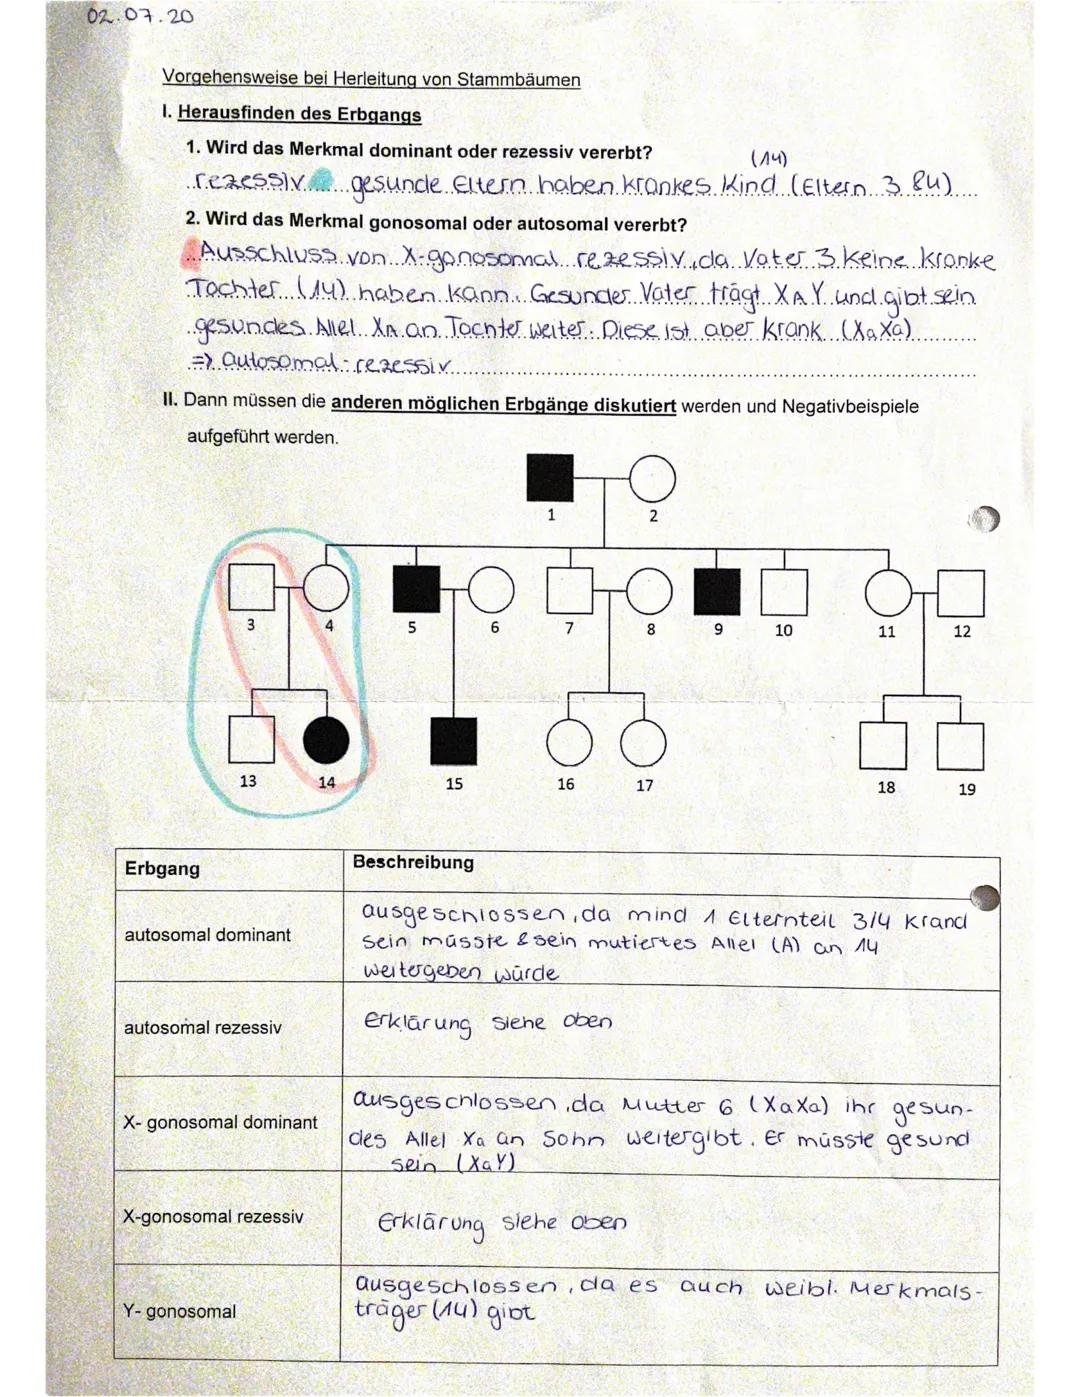 02.07.20
Vorgehensweise bei Herleitung von Stammbäumen
I. Herausfinden des Erbgangs
1. Wird das Merkmal dominant oder rezessiv vererbt?
(14)
rezessiv gesunde Eltern haben krankes Kind (Eltern 3 &4)
2. Wird das Merkmal gonosomal oder autosomal vererbt?
Ausschluss von X-gonosomal rezessiv, da Vater 3 keine kranke
Tochter (14) haben kann. Gesunder Vater trägt XAY und gibt sein
gesundes Allel XA an Tochter weiter. Diese ist aber krank (XaXa)
=> autosomal-rezessiv
II. Dann müssen die anderen möglichen Erbgänge diskutiert werden und Negativbeispiele
aufgeführt werden.
1 2
3 4 5 6 7 8 9 10 11 12
13 14 15 16 17 18 19
Erbgang Beschreibung
autosomal dominant
ausgeschlossen, da mind 1 Elternteil 3/4 krand
sein müsste & sein mutiertes Allel (A) an 14
weitergeben würde
autosomal rezessiv
Erklärung siehe oben
X- gonosomal dominant
ausgeschlossen, da Mutter 6 (XaXa) ihr gesun-
des Allel Xa an Sohn weitergibt. Er müsste gesund
sein (XaY)
X-gonosomal rezessiv
Erklärung siehe oben
Y- gonosomal
ausgeschlossen, da es auch weibl. Merkmals-
träger (14) gibt